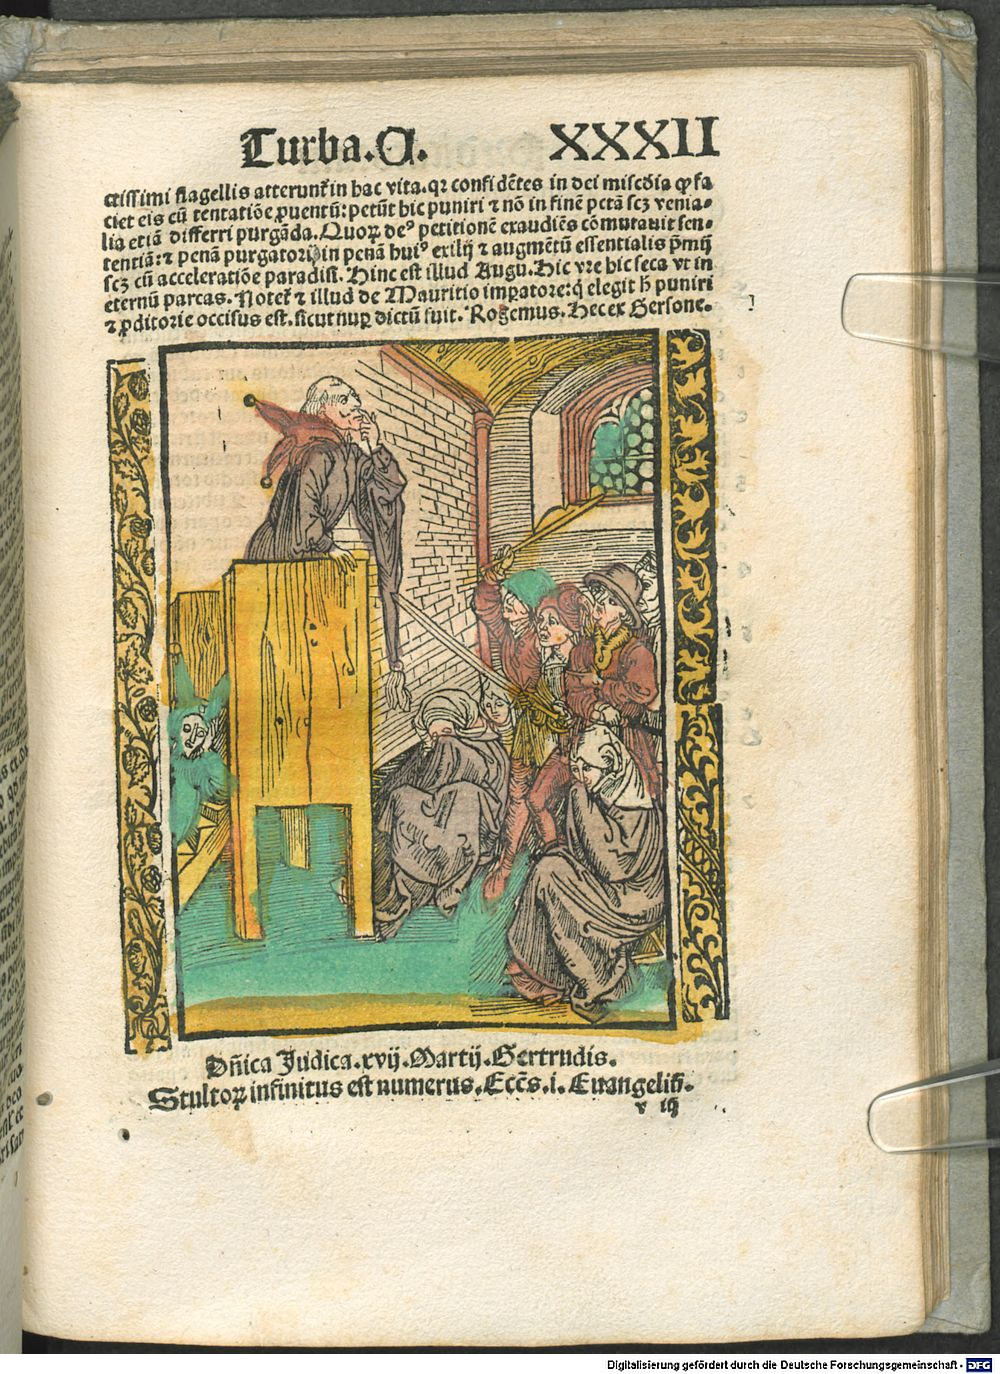 Turba.A. XXXII
ctissimi flagellis atterunt̃ in hac vita. qꝛ confidẽtes in dei mĩscḋia ꝙ fa
ciet eis cũ tentatiõe ꝓuentũ: petũt hic puniri ⁊ nõ in finẽ petã scꝫ venia⸗
lia etiã differri purgãda. Quoꝝ deꝰ petitionẽ exaudiẽs cõmutauit sen⸗
tentiã: ⁊ penã purgatorij in penã huiꝰ exilij ⁊ augmẽtũ essentialis p̃mij
scꝫ cũ acceleratiõe paradisi. Hinc est illud Augu. Hic vre hic seca vt in
eternũ parcas. Notet̃ ⁊ illud de Mauritio imꝑatore: q̇ elegit h̃ puniri
⁊ ꝓditorie occisus est. sicut nuꝑ dictũ fuit. Rogemus. Hec ex Gersone.
Dñica Judica. xvij. Martij. Gertrudis.
Stultoꝝ infinitus est numerus. Ecc̃s. i. Euangelisi.
v iij
Digitalisierung gefördert durch die Deutsche Forschungsgemeinschaft - DFG